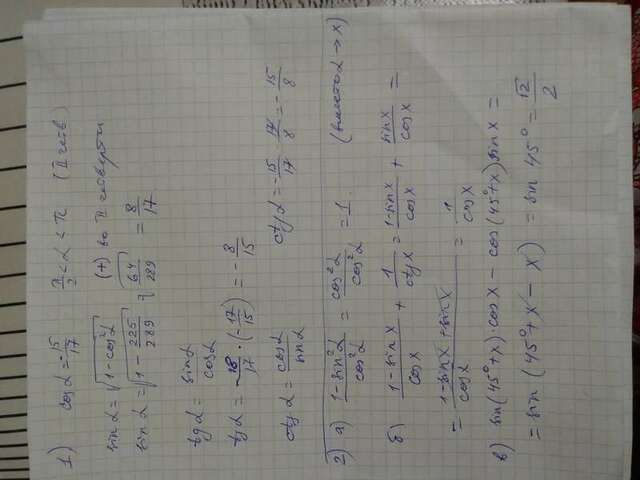 1) cosα = -15/17 π/2 < α < π (II четв)
sinα = √(1-cos²α) (+) во II четверти
sinα = √(1 - 225/289) = √(64/289) = 8/17
tgα = sinα/cosα
tgα = 8/17 · (-17/15) = -8/15
ctgα = cosα/sinα ctgα = -15/17 · 17/8 = -15/8
2) а) (1-sin²α)/cos²α = cos²α/cos²α = 1. (вместо α → x)
б) (1-sinx)/cosx + 1/ctgx = (1-sinx)/cosx + sinx/cosx =
= (1-sinx+sinx)/cosx = 1/cosx
в) sin(45°+x)·cosx - cos(45°+x)sinx =
= sin(45°+x-x) = sin 45° = √2/2